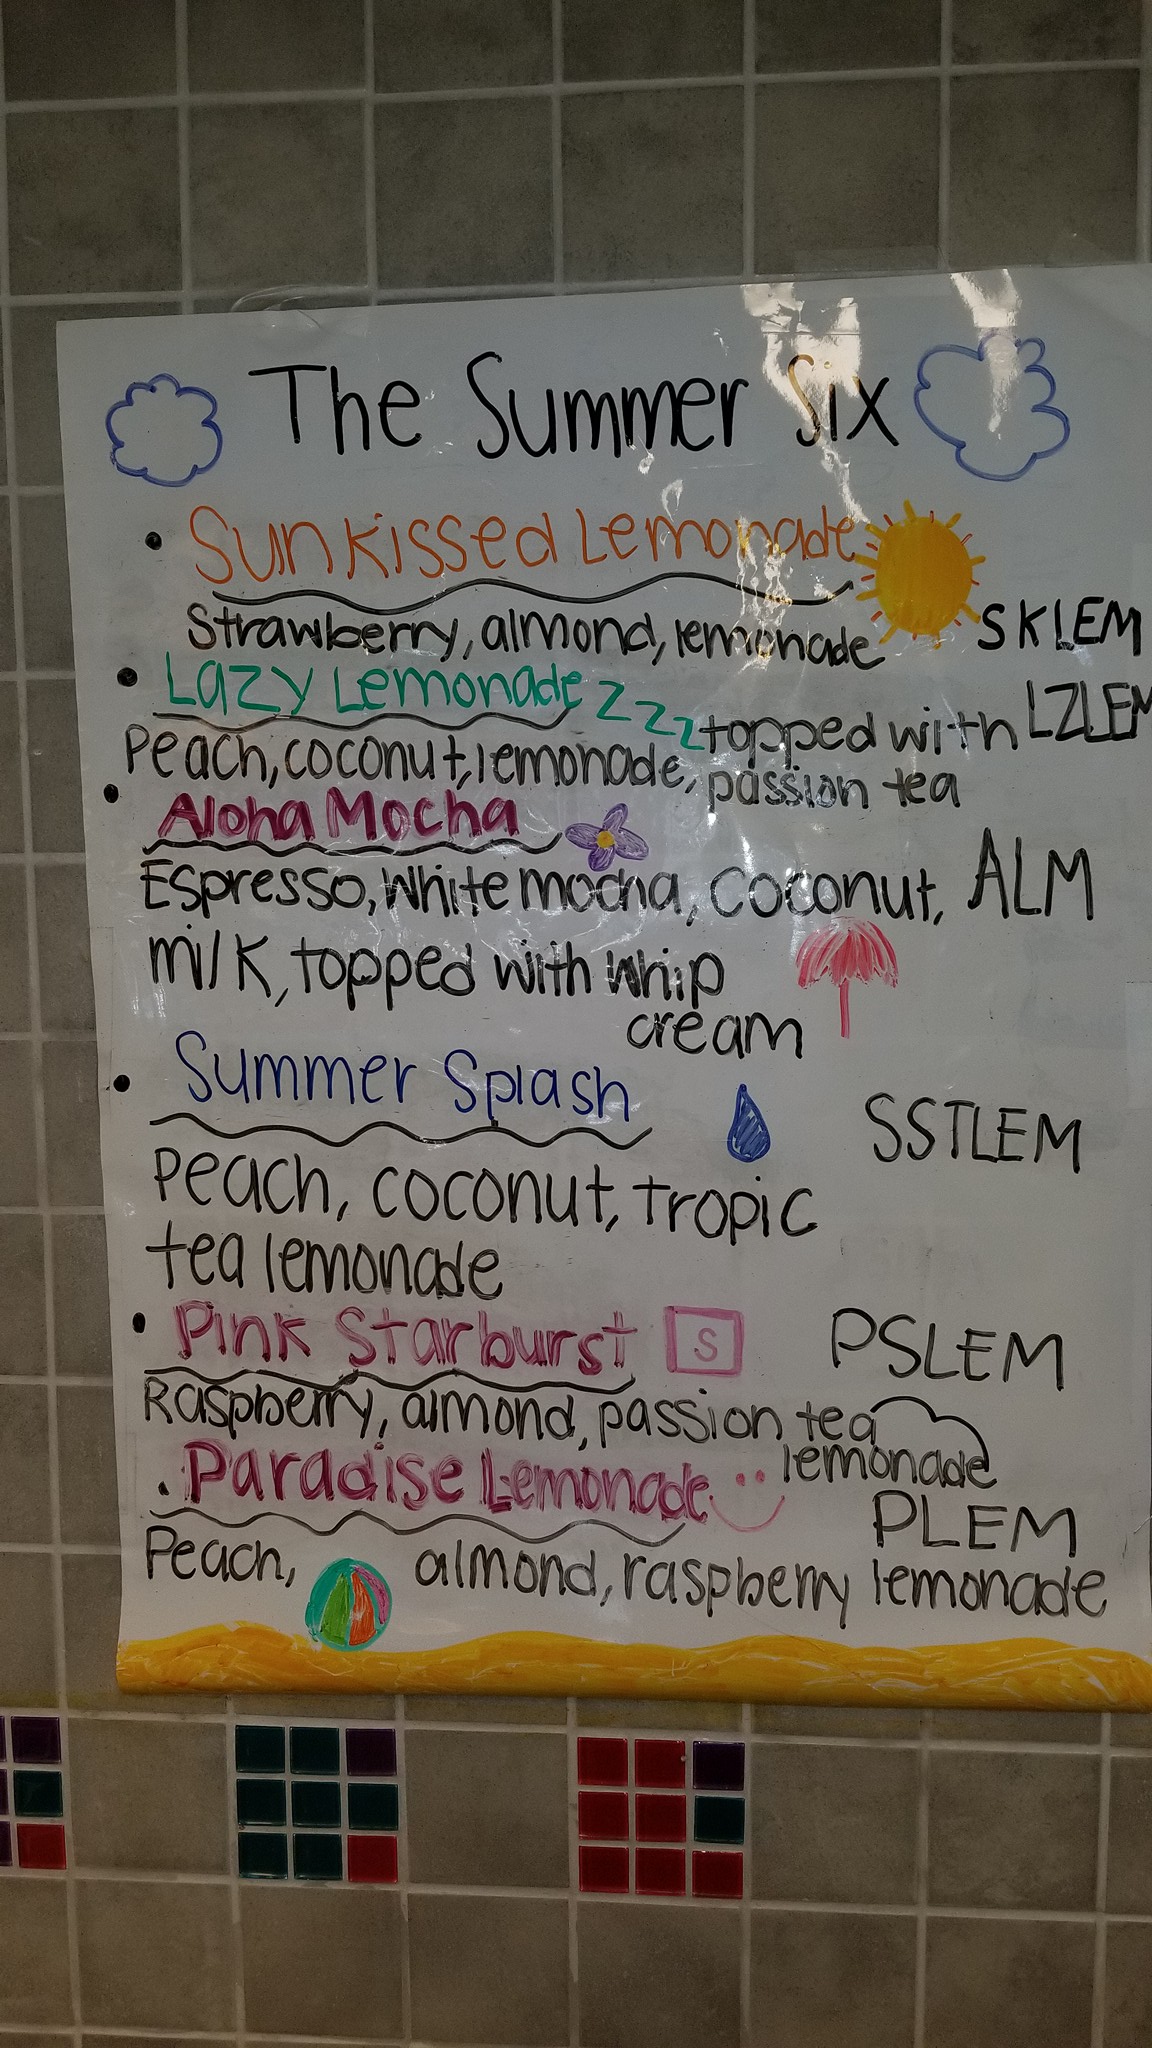 The Summer Six
• Sunkissed Lemonade
Strawberry, almond, lemonade SKLEM
• Lazy Lemonade zzz
Peach, coconut, lemonade, topped with passion tea LZLEM
• Aloha Mocha
Espresso, White mocha, coconut, ALM
milk, topped with whip
cream
• Summer Splash
SSTLEM
Peach, coconut, Tropic
tea lemonade
• Pink Starburst S PSLEM
Raspberry, almond, passion tea
lemonade
• Paradise Lemonade
PLEM
Peach, almond, raspberry lemonade